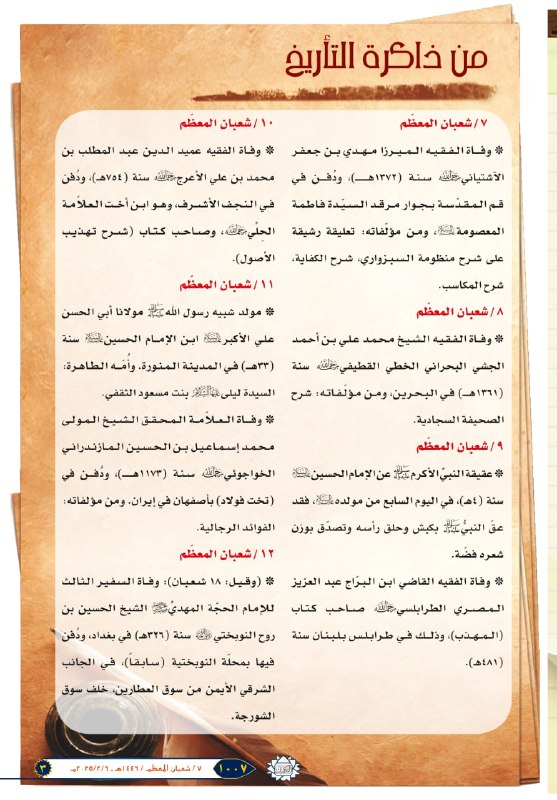 من ذاكرة التأريخ
٧ / شعبان المعظَّم
❊ وفـاة الـفـقـيـه الـمـيـرزا مـهـدي بـن جعفر
الآشتياني سـنـة (١٣٧٢هـــ)، ودُفـن فـي
قـم المـقـدّسـة بـجـوار مـرقـد السـيّـدة فاطمة
المعصومة، ومن مؤلّفاته: تعليقة رشيقة
على شرح منظومة السبزواري، شرح الكفاية،
شرح المكاسب.
٨ / شعبان المعظَّم
❊ وفـاة الفقيه الشيخ محمد علي بن أحمد
الجشي البحراني الخطي القطيفي سنة
(١٣٦١هـ) في البحرين، ومن مؤلّفاته: شرح
الصحيفة السجادية.
٩ / شعبان المعظَّم
❊ عقيقة النبيّ الأكرم ﷺ عن الإمام الحسين
سنة (٤هـ)، في اليوم السابع من مولده، فقد
عقّ النبيُّ ﷺ بكبش وحلق رأسه وتصدّق بوزن
شعره فضّة.
❊ وفاة الفقيه القاضي ابن البرّاج عبد العزيز
الـمـصـري الطرابلسي صـاحـب كـتـاب
(الـمـهـذب)، وذلـك فـي طرابلس بلبنان سنة
(٤٨١هـ).
١٠ / شعبان المعظَّم
❊ وفـاة الفقيه عميد الدين عبد المطلب بن
محمد بن علي الأعرج سنة (٧٥٤هـ)، ودُفن
في النجف الأشـرف، وهـو ابـن أخـت العلاّمة
الحلّي، وصـاحـب كتاب (شـرح تهذيب
الأصول).
١١ / شعبان المعظَّم
❊ مولد شبيه رسول الله ﷺ مولانا أبي الحسن
علي الأكبر ابن الإمام الحسين سنة
(٣٣هـ) في المدينة المنورة. وأُمـه الطاهرة:
السيدة ليلى بنت مسعود الثقفي.
❊ وفـاة الـعـلاّمـة المحقق الشـيـخ المـولى
محمد إسـماعيل بـن الحسـين المازندراني
الخواجوئي سـنـة (١١٧٣هـــ)، ودُفـن فـي
(تخت فولاد) بأصفهان في إيران. ومن مؤلفاته:
الفوائد الرجالية.
١٢ / شعبان المعظَّم
❊ (وقـيـل: ١٨ شـعـبـان): وفـاة السـفير الثالث
للإمام الحجّة المهديّ الشيخ الحسين بن
روح النوبختي سنة (٣٢٦هـ) في بغداد، ودُفن
فيها بمحلّة النوبختية (سـابـقـاً)، في الجانب
الشرقي الأيمن من سوق العطارين، خلف سوق
الشورجة.
١٠٠٧
٧ / شعبان المعظم / ١٤٤٦هـ ـ ٢٠٢٥/٢/٦م
٣